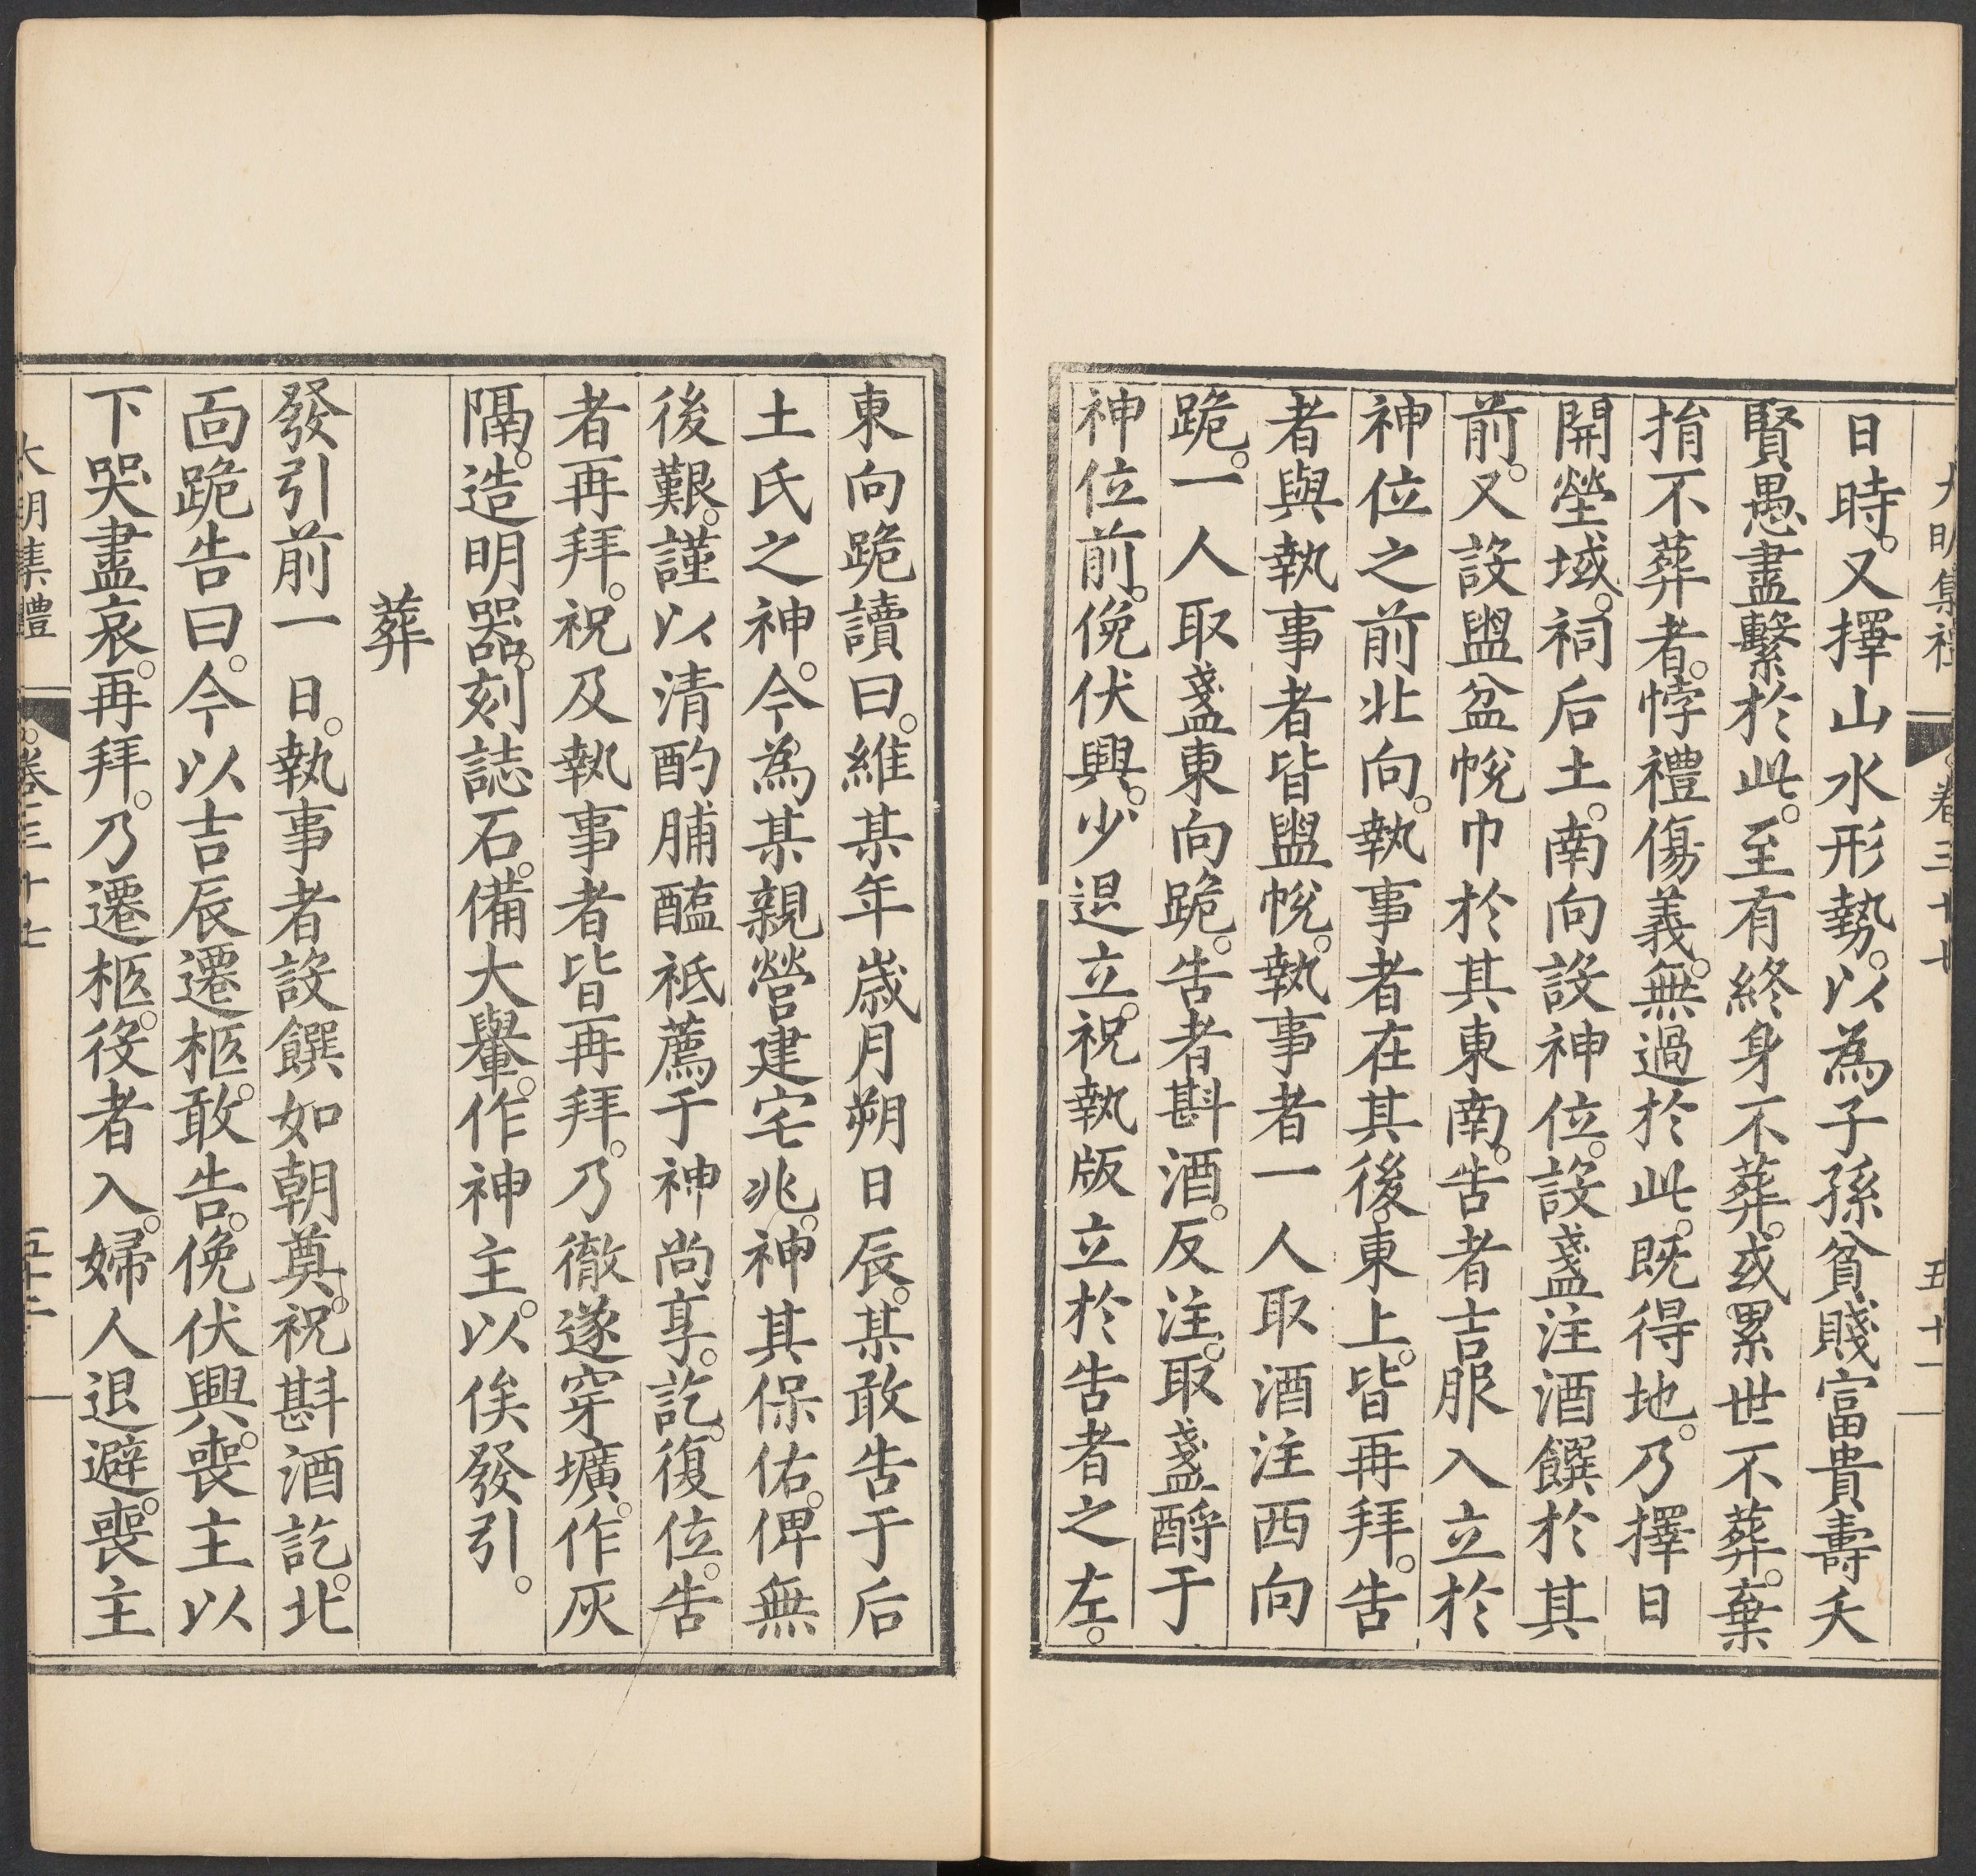 大明集禮 卷三十七 五十一
日時。又擇山水形勢。以為子孫貧賤富貴壽夭
賢愚盡繫於此。至有終身不葬。或累世不葬。棄
捐不葬者。悖禮傷義。無過於此。既得地。乃擇日
開塋域。祠后土。南向設神位。設盞注酒饌於其
前。又設盥盆帨巾於其東南。告者吉服入立於
神位之前北向。執事者在其後。東上。皆再拜。告
者與執事者皆盥帨。執事者一人取酒注西向
跪。一人取盞東向跪。告者斟酒。反注。取盞酹于
神位前。俛伏興。少退立。祝執版立於告者之左。
東向跪讀曰。維某年歲月朔日辰。某敢告于后
土氏之神。今為某親營建宅兆。神其保佑。俾無
後艱。謹以清酌脯醢祗薦于神尚享。訖。復位。告
者再拜。祝及執事者皆再拜。乃徹遂穿壙。作灰
隔。造明器。刻誌石。備大轝。作神主。以俟發引。
葬
發引前一日。執事者設饌如朝奠。祝斟酒訖。北
面跪告曰。今以吉辰遷柩。敢告。俛伏興。喪主以
下哭盡哀。再拜。乃遷柩。役者入。婦人退避。喪主
大明集禮 卷三十七 五十二